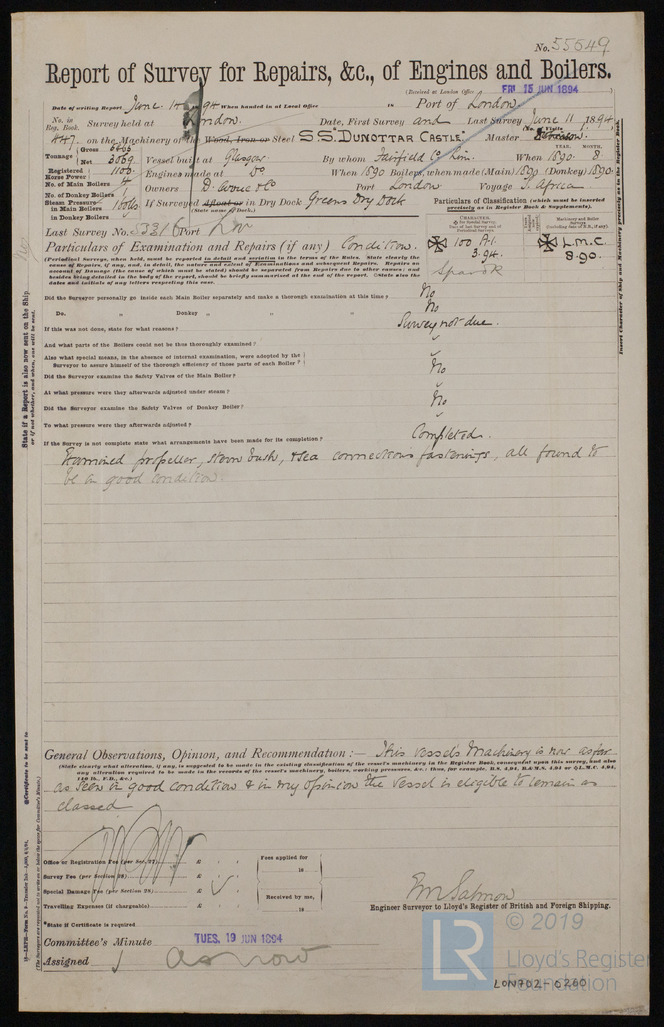 No. 55549
Report of Survey for Repairs, &c., of Engines and Boilers.
(Received at London Office FRI 15 JUN 1894)
Date of writing Report June 94 When handed in at Local Office 18 Port of London
No. in Reg. Book. Survey held at London. Date, First Survey and Last Survey June 11 1894
(No. of Visits )
447 on the Machinery of the Wood, Iron or Steel S.S. "DUNOTTAR CASTLE" Master
Tonnage Gross
Net 3069 Vessel built at Glasgow By whom Fairfield Co Lim. When 1890. YEAR. 8 MONTH.
Registered Horse Power 1100 Engines made at Do When 1890 Boilers, when made (Main) 1890 (Donkey) 1890
No. of Main Boilers 4
No. of Donkey Boilers 1 Owners D. Currie & Co Port London Voyage S. Africa
Steam Pressure in Main Boilers
in Donkey Boilers If Surveyed Afloat or in Dry Dock Greens Dry Dock
(State name of Dock.)
Particulars of Classification (which must be inserted precisely as in Register Book & Supplements).
Last Survey No. 53316 Port Lon
CHARACTER.
100 A.1.
3.94.
Spar Dk
L.M.C.
8.90.
Particulars of Examination and Repairs (if any) Conditions.
(Periodical Surveys, when held, must be reported in detail and seriatim in the terms of the Rules. State clearly the
cause of Repairs, if any, and, in detail, the nature and extent of Examinations and subsequent Repairs. Repairs on
account of Damage (the cause of which must be stated) should be separated from Repairs due to other causes; and
besides being detailed in the body of the report, should be briefly summarised at the end of the report. State also the
dates and initials of any letters respecting this case.
Did the Surveyor personally go inside each Main Boiler separately and make a thorough examination at this time? No
Do. " Donkey " " " No
If this was not done, state for what reasons? Survey not due.
And what parts of the Boilers could not be thus thoroughly examined?
Also what special means, in the absence of internal examination, were adopted by the
Surveyor to assure himself of the thorough efficiency of those parts of each Boiler?
Did the Surveyor examine the Safety Valves of the Main Boiler? No
At what pressure were they afterwards adjusted under steam?
Did the Surveyor examine the Safety Valves of Donkey Boiler? No
To what pressure were they afterwards adjusted?
If the Survey is not complete state what arrangements have been made for its completion? Completed.
Examined propeller, stern bush, & sea connections fastenings, all found to
be in good condition.
State if a Report is also now sent on the Ship.
or if not whether, and when, one will be sent.
Insert Character of Ship and Machinery precisely as in the Register Book.
General Observations, Opinion, and Recommendation :— This vessels Machinery is now as far
(State clearly what alteration, if any, is suggested to be made in the existing classification of the vessel's machinery in the Register Book, consequent upon this survey, and also
any alteration required to be made in the records of the vessel's machinery, boilers, working pressures, &c.; thus, for example, B.S. 4.94, B.&M.S. 4.94 or L.M.C. 4.94,
140 lb., F.D., &c.)
as seen in good condition & in my opinion the vessel is eligible to remain as
classed
Office or Registration Fee (per Sec. 27) £ : : Fees applied for
Survey Fee (per Section 28) £ : : 18
Special Damage Fee (per Section 28) £ : : Received by me,
Travelling Expenses (if chargeable) £ : : 18
*State if Certificate is required
E W Salmon
Engineer Surveyor to Lloyd's Register of British and Foreign Shipping.
Committee's Minute TUES. 19 JUN 1894
Assigned as now
© 2019
LR Lloyd's Register
Foundation
LON702-0260